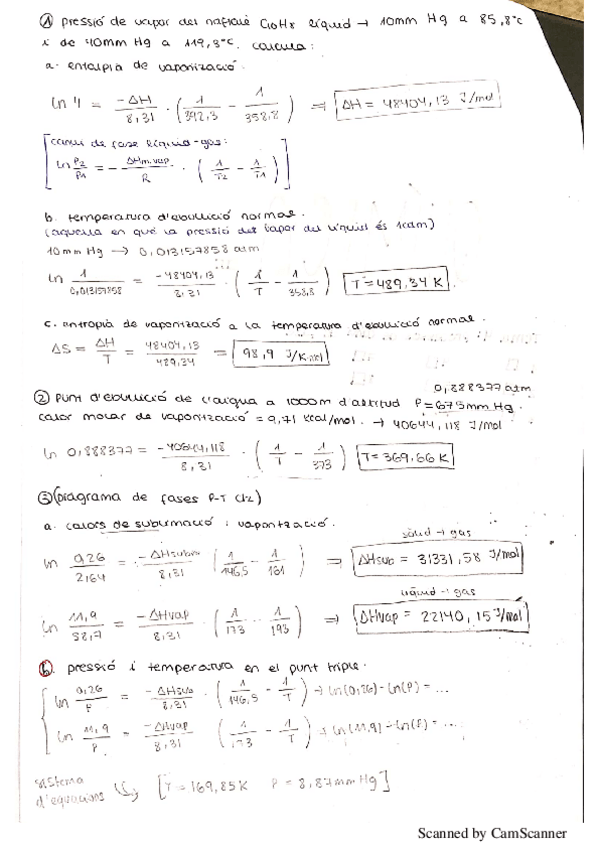 ① pressió de vapor del naftalè C10H8 líquid → 10mm Hg a 85,8°C
i de 40mm Hg a 119,3°C. calcula:
a. entalpia de vaporització.
ln 4 = -ΔH / 8,31 · (1/392,3 - 1/358,8) ⇒ ΔH = 48404,13 J/mol
[canvis de fase líquid-gas:
ln P2/P1 = - ΔHm,vap / R · (1/T2 - 1/T1)]
b. temperatura d'ebullició normal.
(aquella en què la pressió del vapor del líquid és 1atm)
10mm Hg → 0,013157858 atm
ln 1 / 0,013157858 = -48404,13 / 8,31 · (1/T - 1/358,8) T = 489,34 K
c. entropia de vaporització a la temperatura d'ebullició normal.
ΔS = ΔH/T = 48404,13 / 489,34 = 98,9 J/K·mol
0,888377 atm
② Punt d'ebullició de l'aigua a 1000m d'altitud P = 675mm Hg.
calor molar de vaporització = 9,71 kcal/mol. → 40644,118 J/mol
ln 0,888377 = -40644,118 / 8,31 · (1/T - 1/373) T = 369,66 K
③ (diagrama de fases P-T Cl2)
a. calors de sublimació i vaporització.
sòlid → gas
ln 0,26 / 2,64 = -ΔHsubm / 8,31 · (1/146,5 - 1/161) ⇒ ΔHsub = 31331,58 J/mol
líquid → gas
ln 11,9 / 58,7 = -ΔHvap / 8,31 · (1/173 - 1/193) ⇒ ΔHvap = 22140,15 J/mol
b. pressió i temperatura en el punt triple.
ln 0,26 / P = -ΔHsub / 8,31 · (1/146,5 - 1/T) → ln(0,26) - ln(P) = ...
ln 11,9 / P = -ΔHvap / 8,31 (1/173 - 1/T) → ln(11,9) - ln(P) = ...
sistema
d'equacions ↳ [T = 169,85K P = 8,87mm Hg]
Scanned by CamScanner